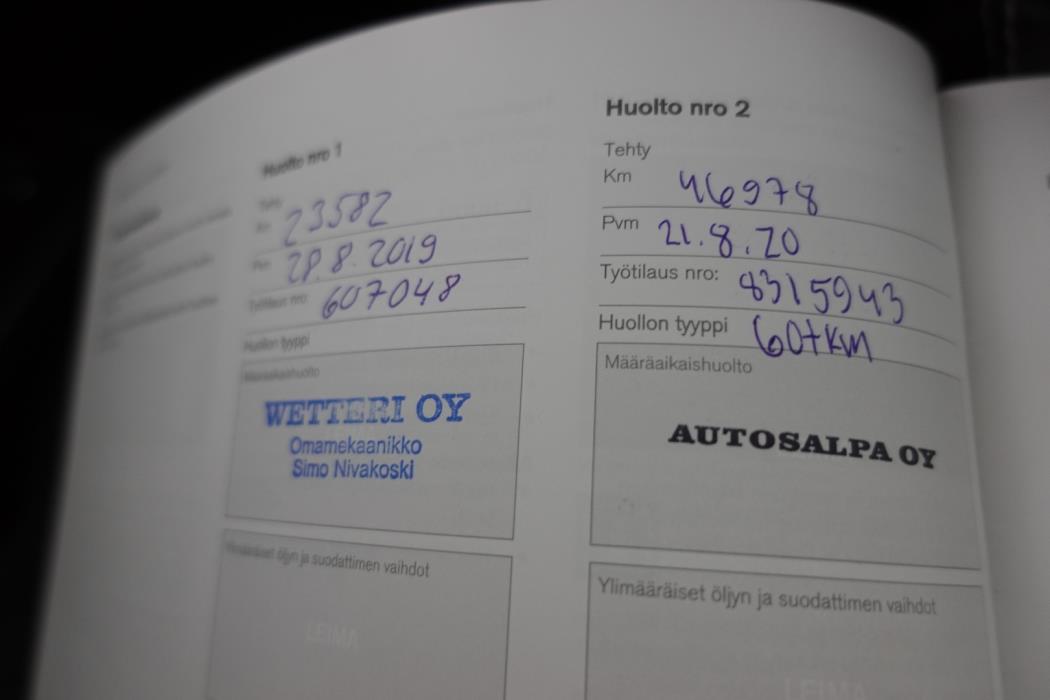 Huolto nro 1
23582
28.8.2019
Työtilaus nro: 607048
Huollon tyyppi
Määräaikaishuolto
WETTERI OY
Omamekaanikko
Simo Nivakoski
Ylimääräiset öljyn ja suodattimen vaihdot
LEIMA
Huolto nro 2
Tehty
Km 46978
Pvm 21.8.20
Työtilaus nro: 8315943
Huollon tyyppi 60tkm
Määräaikaishuolto
AUTOSALPA OY
Ylimääräiset öljyn ja suodattimen vaihdot
LEIMA